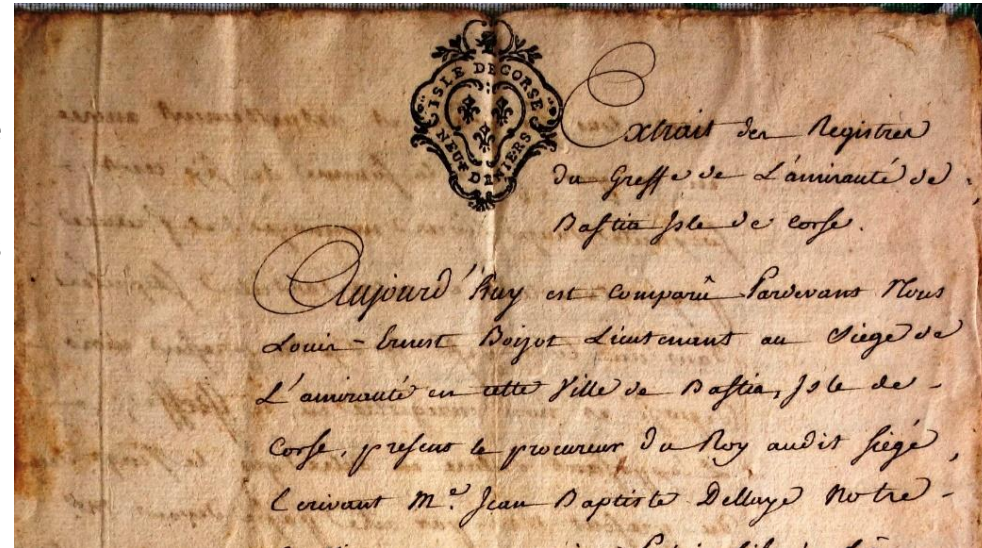 ISLE DE CORSE
NEUF DENIERS
Extrait des Registres
du Greffe de L'amirauté de
Bastia Isle de Corse.
Aujourd'huy est comparû Pardevant Nous
Louis-Ernest Boizot Lieutenant au Siége de
L'amirauté en cette Ville de Bastia, Isle de-
Corse, présent le procureur du Roy audit siégé,
Ecrivant M.e Jean Baptiste Dellaye Notre-